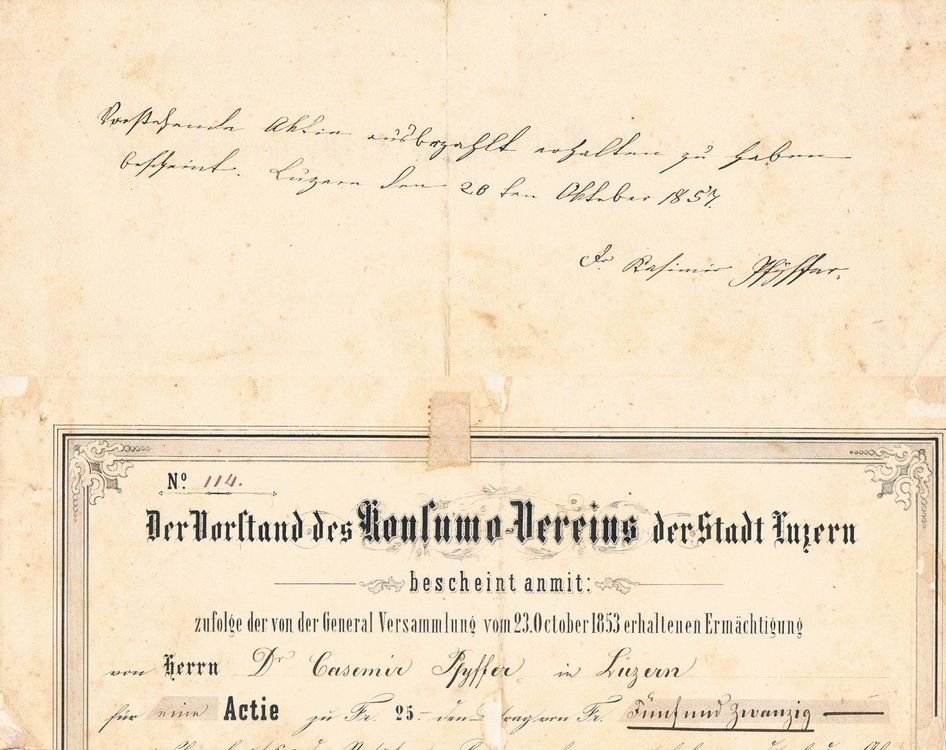 Vorstehende Aktie ausbezahlt erhalten zu haben
bescheint. Luzern den 20ten Oktober 1857.
Dr. Kasimir Pfyffer.
Nº 114.
Der Vorstand des Konsumo-Vereins der Stadt Luzern
bescheint anmit:
zufolge der von der General Versammlung vom 23. October 1853 erhaltenen Ermächtigung
von Herrn Dr Casemir Pfyffer in Luzern
für eine Actie zu Fr. 25.- den trag von Fr. Fünf und Zwanzig